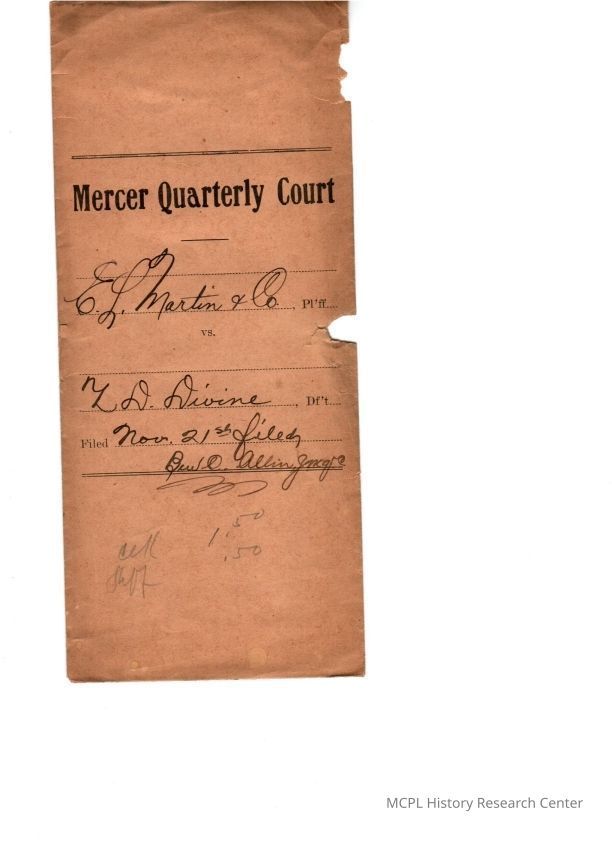 Mercer Quarterly Court
E. L. Martin & Co. , Pl'ff.
vs.
D. Divine , Df't.
Filed Nov. 21st filed
Ben C. Allin
1.50
.50
MCPL History Research Center